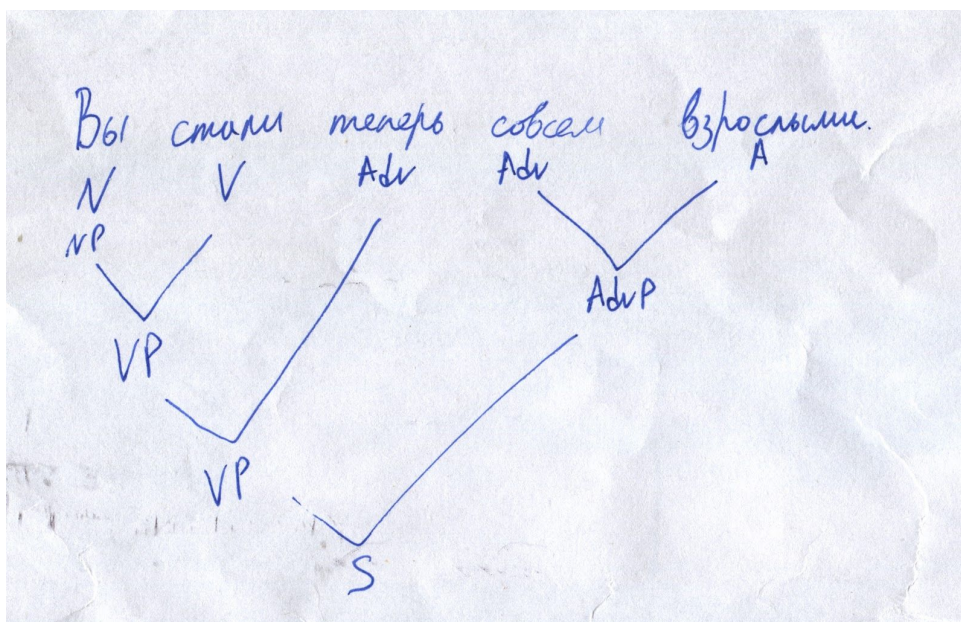 Вы стали теперь совсем взрослыми.
N V Adv Adv A
NP
AdvP
VP
VP
S